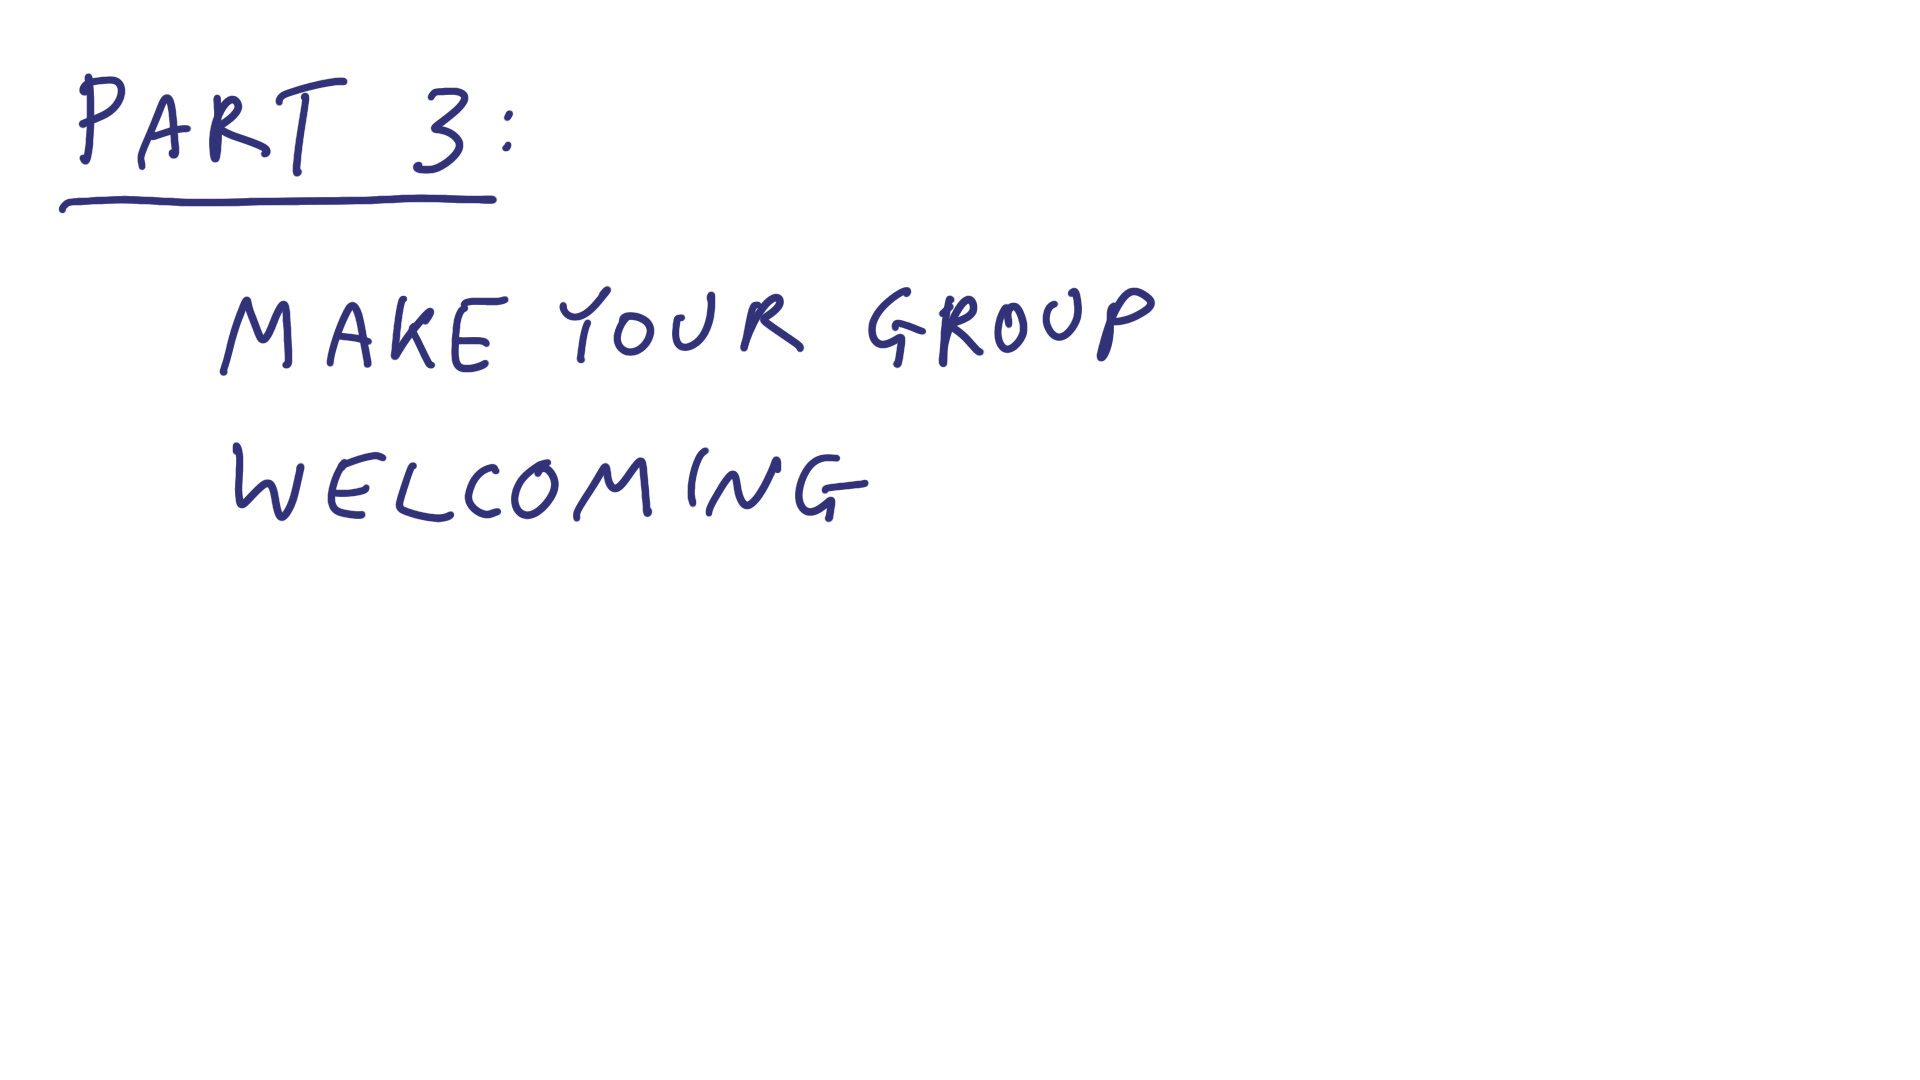 PART 3:
MAKE YOUR GROUP
WELCOMING